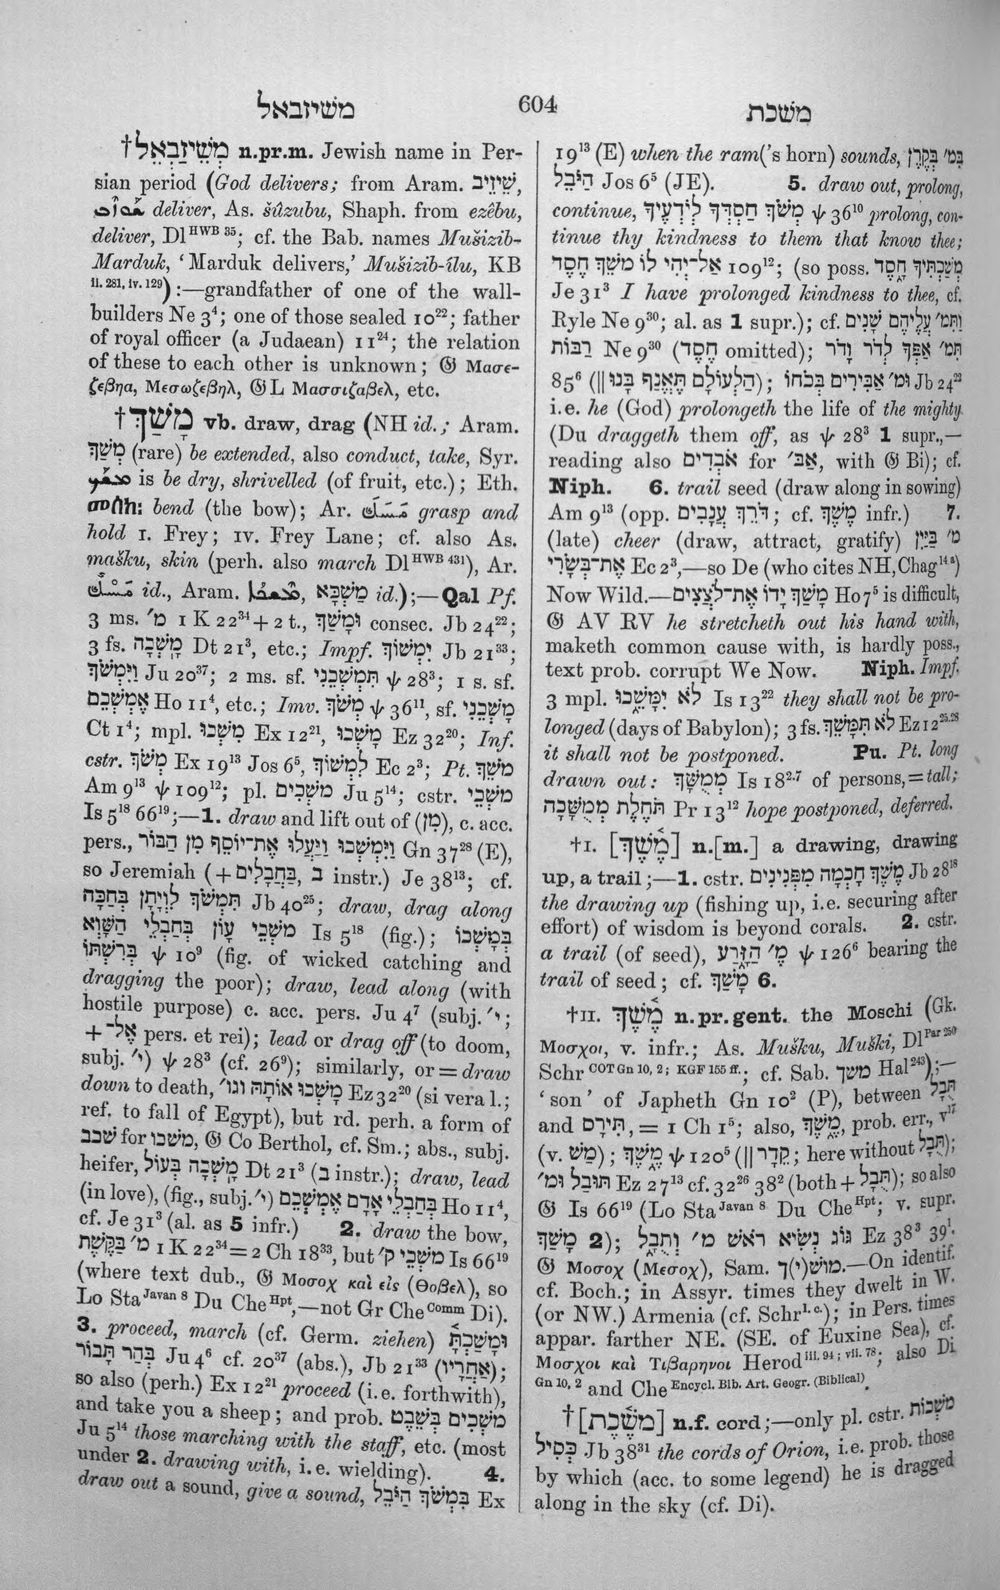 משיזבאל
604
משכת
†מְשֵׁיזַבְאֵל n.pr.m. Jewish name in Per-
sian period (God delivers; from Aram. שֵׁיזִיב,
deliver, As. šûzubu, Shaph. from ezêbu,
deliver, Dl HWB 35; cf. the Bab. names Mušizib-
Marduk, ‘Marduk delivers,’ Mušizib-ilu, KB
ii. 281, iv. 129):—grandfather of one of the wall-
builders Ne 3⁴; one of those sealed 10²²; father
of royal officer (a Judaean) 11²⁴; the relation
of these to each other is unknown; 𝔊 Μασε-
ζεβηα, Μεσωζεβηλ, 𝔊L Μασσιζαβελ, etc.
†מָשַׁךְ vb. draw, drag (NH id.; Aram.
מְשַׁךְ (rare) be extended, also conduct, take, Syr.
is be dry, shrivelled (of fruit, etc.); Eth.
መሰከ: bend (the bow); Ar. مَسَكَ grasp and
hold I. Frey; IV. Frey Lane; cf. also As.
mašku, skin (perh. also march Dl HWB 431), Ar.
مَسْكٌ id., Aram. מַשְׁכָּא id.);—Qal Pf.
3 ms. מ׳ 1 K 22³⁴ + 2 t., וּמָשַׁךְ consec. Jb 24²²;
3 fs. מָשְׁכָה Dt 21³, etc.; Impf. יִמְשׁוֹךְ Jb 21³³;
וַיִּמְשֹׁךְ Ju 20³⁷; 2 ms. sf. תִּמְשְׁכֵנִי ψ 28³; 1 s. sf.
אֶמְשְׁכֵם Ho 11⁴, etc.; Imv. מְשֹׁךְ ψ 36¹¹, sf. מָשְׁכֵנִי
Ct 1⁴; mpl. מִשְׁכוּ Ex 12²¹, מָשְׁכוּ Ez 32²⁰; Inf.
cstr. מְשֹׁךְ Ex 19¹³ Jos 6⁵, לִמְשׁוֹךְ Ec 2³; Pt. מֹשֵׁךְ
Am 9¹³ ψ 109¹²; pl. מֹשְׁכִים Ju 5¹⁴; cstr. מֹשְׁכֵי
Is 5¹⁸ 66¹⁹;—1. draw and lift out of (מִן), c. acc.
pers., וַיִּמְשְׁכוּ וַיַּעֲלוּ אֶת־יוֹסֵף מִן הַבּוֹר Gn 37²⁸ (E),
so Jeremiah (+ בַּחֲבָלִים, בְּ instr.) Je 38¹³; cf.
תִּמְשֹׁךְ לִוְיָתָן בְּחַכָּה Jb 40²⁵; draw, drag along
מֹשְׁכֵי עָוֹן בְּחַבְלֵי הַשָּׁוְא Is 5¹⁸ (fig.); בְּמָשְׁכוֹ
בְּרִשְׁתּוֹ ψ 10⁹ (fig. of wicked catching and
dragging the poor); draw, lead along (with
hostile purpose) c. acc. pers. Ju 4⁷ (subj. י׳;
+ אֶל־ pers. et rei); lead or drag off (to doom,
subj. י׳) ψ 28³ (cf. 26⁹); similarly, or = draw
down to death, מָשְׁכוּ אוֹתָהּ וגו׳ Ez 32²⁰ (si vera l.;
ref. to fall of Egypt), but rd. perh. a form of
שכב for משכו, 𝔊 Co Berthol, cf. Sm.; abs., subj.
heifer, מָשְׁכָה בְּעוֹל Dt 21³ (בְּ instr.); draw, lead
(in love), (fig., subj. י׳) בְּחַבְלֵי אָדָם אֶמְשְׁכֵם Ho 11⁴,
cf. Je 31³ (al. as 5 infr.) 2. draw the bow,
מ׳ בַּקֶּשֶׁת 1 K 22³⁴ = 2 Ch 18³³, but מֹשְׁכֵי ק׳ Is 66¹⁹
(where text dub., 𝔊 Μοσοχ καὶ εἰς (Θοβελ), so
Lo Sta Javan 8 Du Che Hpt,—not Gr Che Comm Di).
3. proceed, march (cf. Germ. ziehen) וּמָשַׁכְתָּ
בְּהַר תָּבוֹר Ju 4⁶ cf. 20³⁷ (abs.), Jb 21³³ (אַחֲרָיו);
so also (perh.) Ex 12²¹ proceed (i.e. forthwith),
and take you a sheep; and prob. מֹשְׁכִים בְּשֵׁבֶט
Ju 5¹⁴ those marching with the staff, etc. (most
under 2. drawing with, i.e. wielding). 4.
draw out a sound, give a sound, בִּמְשֹׁךְ הַיֹּבֵל Ex
19¹³ (E) when the ram(’s horn) sounds, בְּמ׳ בְּקֶרֶן
הַיֹּבֵל Jos 6⁵ (JE). 5. draw out, prolong,
continue, מְשֹׁךְ חַסְדְּךָ לְיֹדְעֶיךָ ψ 36¹⁰ prolong, con-
tinue thy kindness to them that know thee;
אַל־יְהִי לוֹ מֹשֵׁךְ חָסֶד 109¹²; (so poss. מְשַׁכְתִּיךְ חָסֶד
Je 31³ I have prolonged kindness to thee, cf.
Ryle Ne 9³⁰; al. as 1 supr.); cf. וַתִּמ׳ עֲלֵיהֶם שָׁנִים
רַבּוֹת Ne 9³⁰ (חֶסֶד omitted); תִּמ׳ אַפְּךָ לְדֹר וָדֹר
85⁶ (|| הַלְעוֹלָם תֶּאֱנַף בָּנוּ); וּמ׳ אַבִּירִים בְּכֹחוֹ Jb 24²²
i.e. he (God) prolongeth the life of the mighty.
(Du draggeth them off, as ψ 28³ 1 supr.,—
reading also אֹבְדִים for אַבּ׳, with 𝔊 Bi); cf.
Niph. 6. trail seed (draw along in sowing)
Am 9¹³ (opp. דֹּרֵךְ עֲנָבִים; cf. מֶשֶׁךְ infr.) 7.
(late) cheer (draw, attract, gratify) מ׳ בַּיַּיִן
אֶת־בְּשָׂרִי Ec 2³,—so De (who cites NH, Chag 14 a)
Now Wild.—מָשַׁךְ יָדוֹ אֶת־לֹצְצִים Ho 7⁵ is difficult,
𝔊 AV RV he stretcheth out his hand with,
maketh common cause with, is hardly poss.,
text prob. corrupt We Now. Niph. Impf.
3 mpl. לֹא יִמָּשֵׁכוּ Is 13²² they shall not be pro-
longed (days of Babylon); 3 fs. לֹא תִמָּשֵׁךְ Ez 12²⁵·²⁸
it shall not be postponed. Pu. Pt. long
drawn out: מְמֻשָּׁךְ Is 18²·⁷ of persons, = tall;
תֹּחֶלֶת מְמֻשָּׁכָה Pr 13¹² hope postponed, deferred.
†I. [מֶשֶׁךְ] n.[m.] a drawing, drawing
up, a trail;—1. cstr. מֶשֶׁךְ חָכְמָה מִפְּנִינִים Jb 28¹⁸
the drawing up (fishing up, i.e. securing after
effort) of wisdom is beyond corals. 2. cstr.
a trail (of seed), מ׳ הַזָּרַע ψ 126⁶ bearing the
trail of seed; cf. מָשַׁךְ 6.
†II. מֶשֶׁךְ n.pr.gent. the Moschi (Gk.
Μοσχοι, v. infr.; As. Mušku, Muški, Dl Par 250
Schr COT Gn 10, 2; KGF 155 ff.; cf. Sab. משך Hal 243);—
‘son’ of Japheth Gn 10² (P), between תֻּבָל
and תִּירָס, = 1 Ch 1⁵; also, מֶשֶׁךְ, prob. err., v¹⁷
(v. מַשׁ); מֶשֶׁךְ ψ 120⁵ (|| קֵדָר; here without תֻּבָל);
תּוּבַל וּמ׳ Ez 27¹³ cf. 32²⁶ 38² (both + תֻּבָל); so also
𝔊 Is 66¹⁹ (Lo Sta Javan 8 Du Che Hpt; v. supr.
מָשַׁךְ 2); גּוֹג נְשִׂיא רֹאשׁ מ׳ וְתֻבָל Ez 38³ 39¹.
𝔊 Μοσοχ (Μεσοχ), Sam. מוש(י)ך.—On identif.
cf. Boch.; in Assyr. times they dwelt in W.
(or NW.) Armenia (cf. Schr l. c.); in Pers. times
appar. farther NE. (SE. of Euxine Sea), cf.
Μοσχοι καὶ Τιβαρηνοι Herod iii. 94; vii. 78; also Di
Gn 10, 2 and Che Encycl. Bib. Art. Geogr. (Biblical).
†[מֹשֶׁכֶת] n.f. cord;—only pl. cstr. מֹשְׁכוֹת
כְּסִיל Jb 38³¹ the cords of Orion, i.e. prob. those
by which (acc. to some legend) he is dragged
along in the sky (cf. Di).